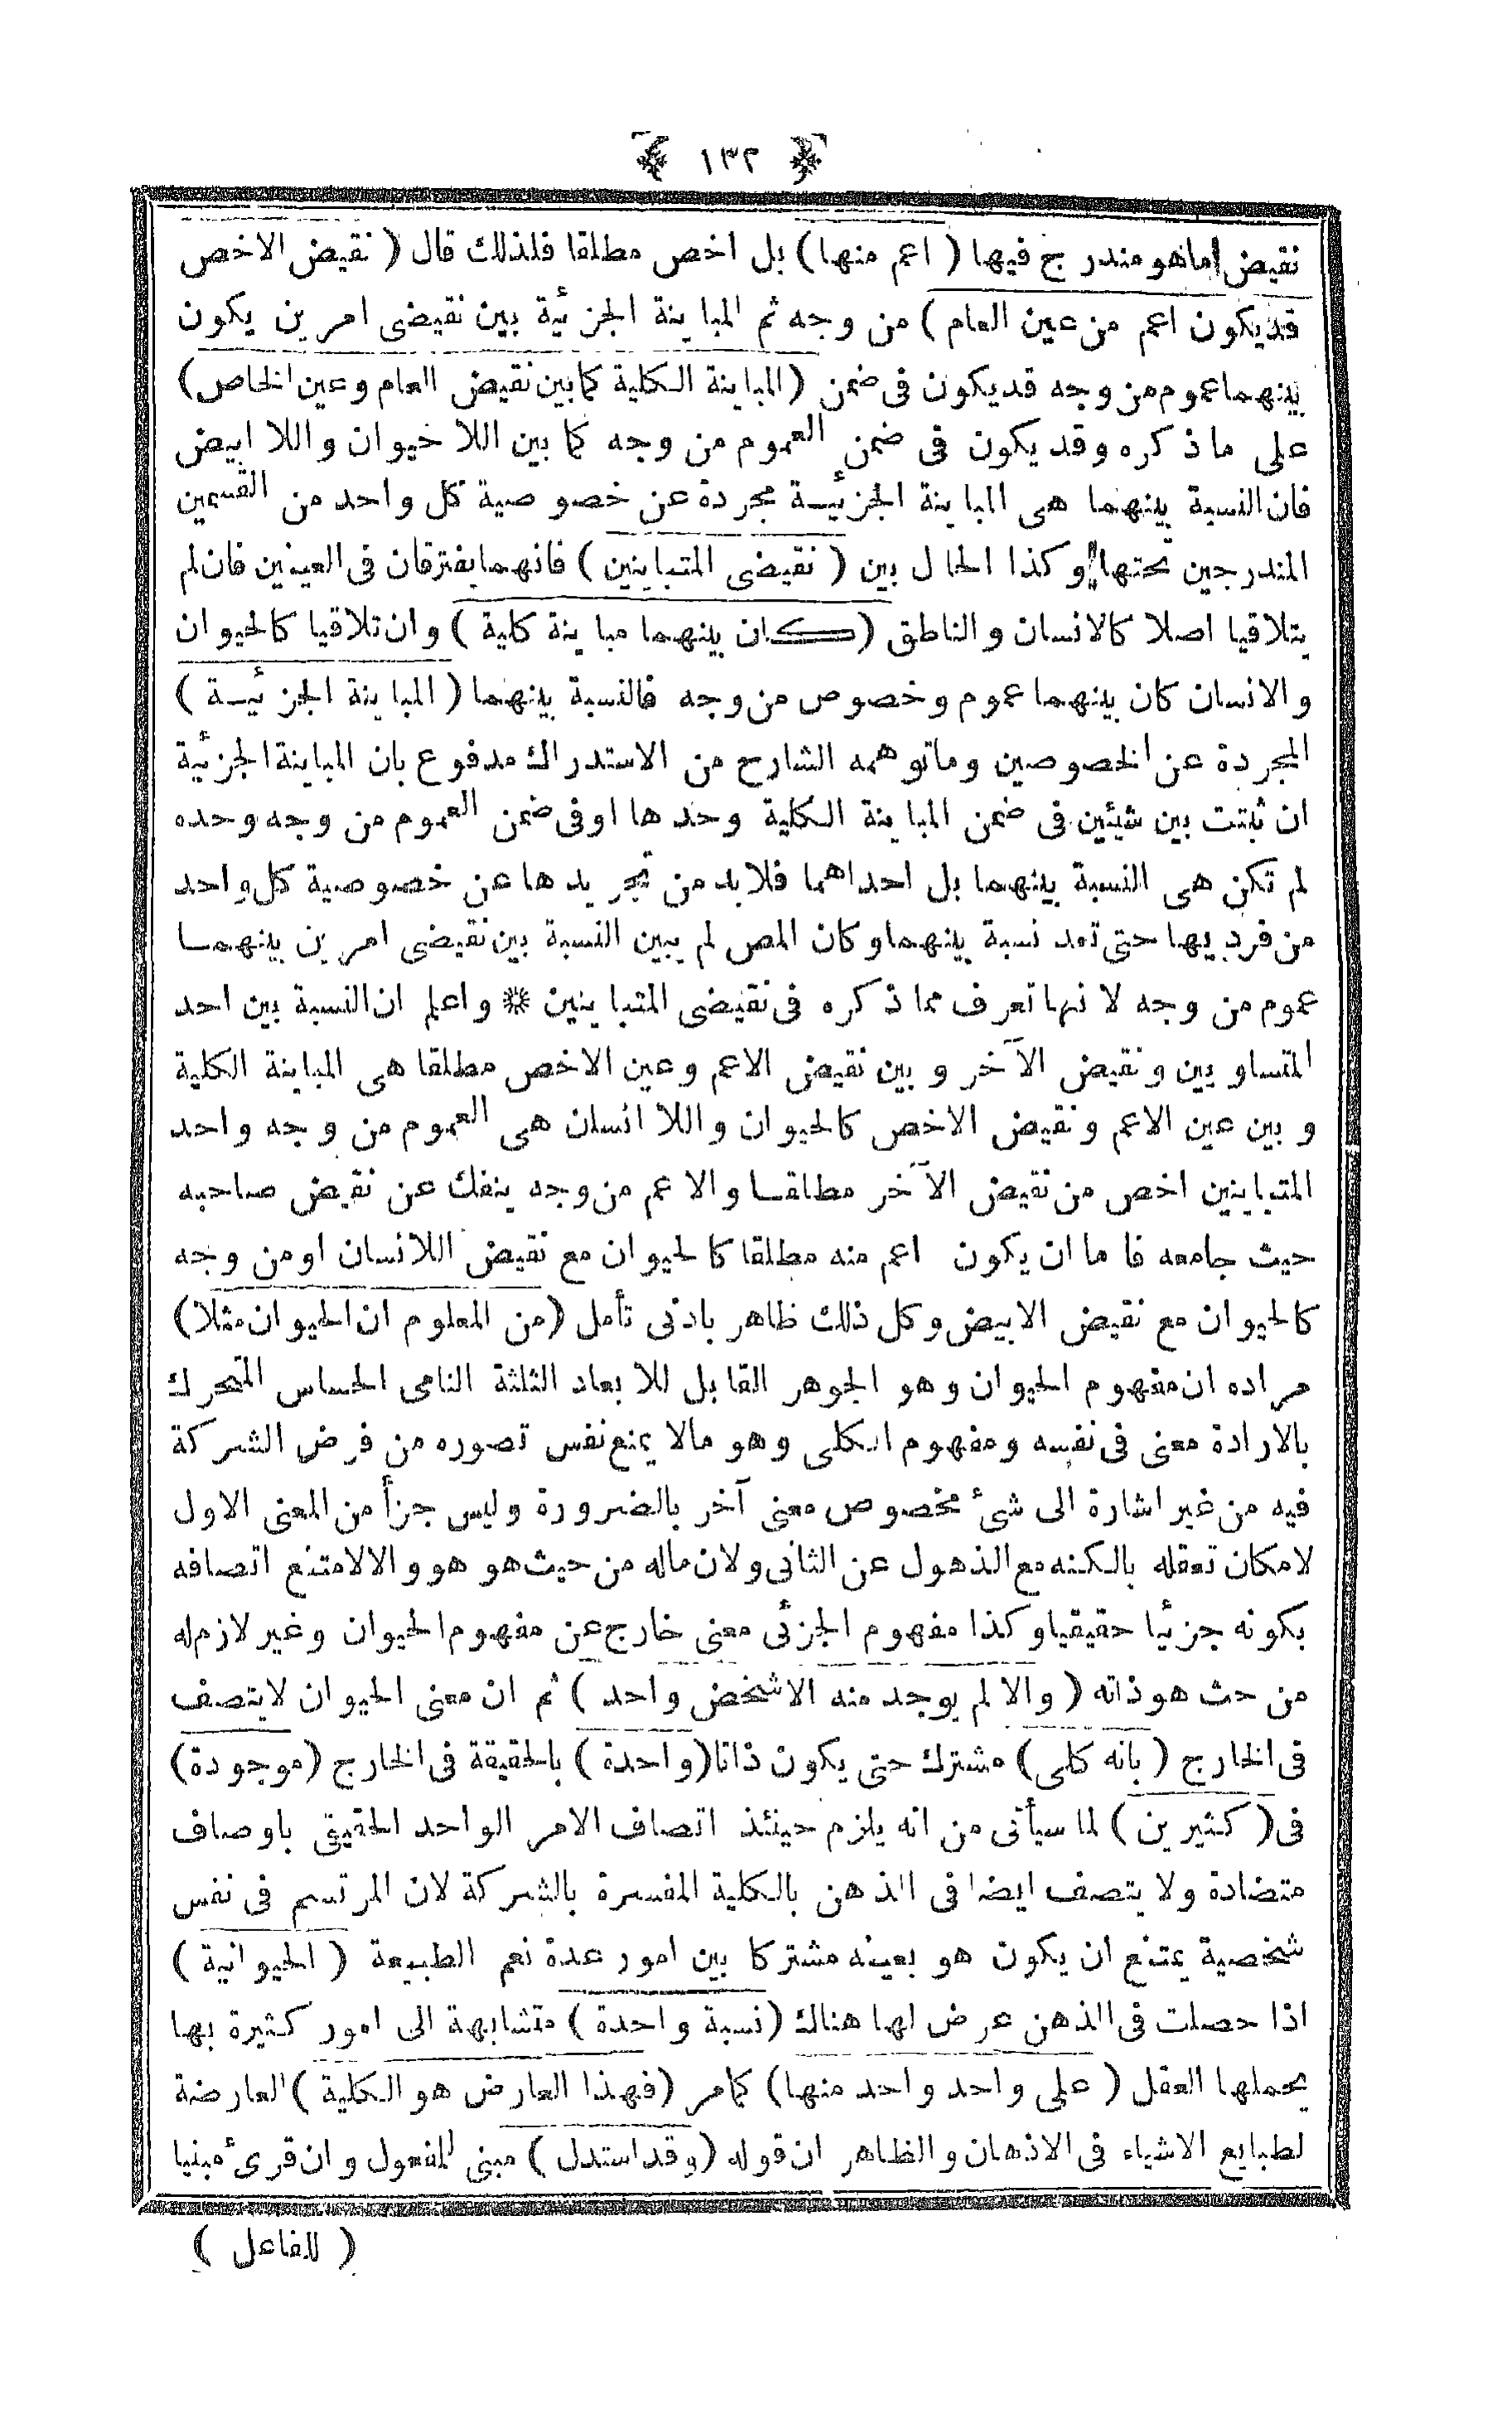 ﴿ ١٣٢ ﴾
نقيض ماهو مندرج فيها ( اعم منها ) بل اخص مطلقا فلذلك قال ( نقيض الاخص
قد يكون اعم من عين العام ) من وجه ثم المباينة الجزئية بين نقيضى امرين يكون
بينهما عموم من وجه قد يكون فى ضمن ( المباينة الكلية كما بين نقيض العام وعين الخاص )
على ما ذكره وقد يكون فى ضمن العموم من وجه كما بين اللا حيوان واللا ابيض
فان النسبة بينهما هى المباينة الجزئية مجردة عن خصوصية كل واحد من القسمين
المندرجين تحتها وكذا الحال بين ( نقيضى المتباينين ) فانهما يفترقان فى العينين فان لم
يتلاقيا اصلا كالانسان والناطق ( كان بينهما مباينة كلية ) وان تلاقيا كالحيوان
والانسان كان بينهما عموم وخصوص من وجه فالنسبة بينهما ( المباينة الجزئية )
المجردة عن الخصوصين وماتوهمه الشارح من الاستدراك مدفوع بان المباينة الجزئية
ان ثبتت بين شيئين فى ضمن المباينة الكلية وحدها او فى ضمن العموم من وجه وحده
لم تكن هى النسبة بينهما بل احداهما فلابد من تجريدها عن خصوصية كل واحد
من فرديها حتى تعد نسبة بينهما وكان المص لم يبين النسبة بين نقيضى امرين بينهما
عموم من وجه لانها تعرف مما ذكره فى نقيضى المتباينين ※ واعلم ان النسبة بين احد
المتساويين ونقيض الآخر وبين نقيض الاعم وعين الاخص مطلقا هى المباينة الكلية
وبين عين الاعم ونقيض الاخص كالحيوان واللا انسان هى العموم من وجه واحد
المتباينين اخص من نقيض الآخر مطلقا والاعم من وجه ينفك عن نقيض صاحبه
حيث جامعه فاما ان يكون اعم منه مطلقا كالحيوان مع نقيض اللانسان او من وجه
كالحيوان مع نقيض الابيض وكل ذلك ظاهر بادنى تأمل ( من المعلوم ان الحيوان مثلا )
مراده ان مفهوم الحيوان وهو الجوهر القابل للابعاد الثلثة النامى الحساس المتحرك
بالارادة معنى فى نفسه ومفهوم الكلى وهو مالا يمنع نفس تصوره من فرض الشركة
فيه من غير اشارة الى شئ مخصوص معنى آخر بالضرورة وليس جزأ من المعنى الاول
لامكان تعقله بالكنه مع الذهول عن الثانى ولان ماله من حيث هو هو والا لامتنع اتصافه
بكونه جزئيا حقيقيا وكذا مفهوم الجزئى معنى خارج عن مفهوم الحيوان وغير لازم له
من حث هو ذاته ( والا لم يوجد منه الا شخص واحد ) ثم ان معنى الحيوان لايتصف
فى الخارج ( بانه كلى ) مشترك حتى يكون ذاتا ( واحدة ) بالحقيقة فى الخارج ( موجودة )
فى ( كثيرين ) لما سيأتى من انه يلزم حينئذ اتصاف الامر الواحد الحقيقى باوصاف
متضادة ولا يتصف ايضا فى الذهن بالكلية المفسرة بالشركة لان المرتسم فى نفس
شخصية يمتنع ان يكون هو بعينه مشتركا بين امور عدة نعم الطبيعة ( الحيوانية )
اذا حصلت فى الذهن عرض لها هناك ( نسبة واحدة ) متشابهة الى امور كثيرة بها
يحملها العقل ( على واحد واحد منها ) كمامر ( فهذا العارض هو الكلية ) العارضة
لطبايع الاشياء فى الاذهان والظاهر ان قوله ( وقد استدل ) مبنى للمفعول وان قرئ مبنيا
( للفاعل )